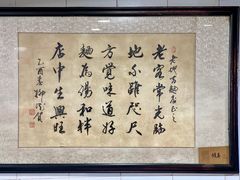 老地方麵店正之
老客常光臨
地不離咫尺
方覺味道好
麵為湯和拌
店中生興旺
乙酉春柳賀